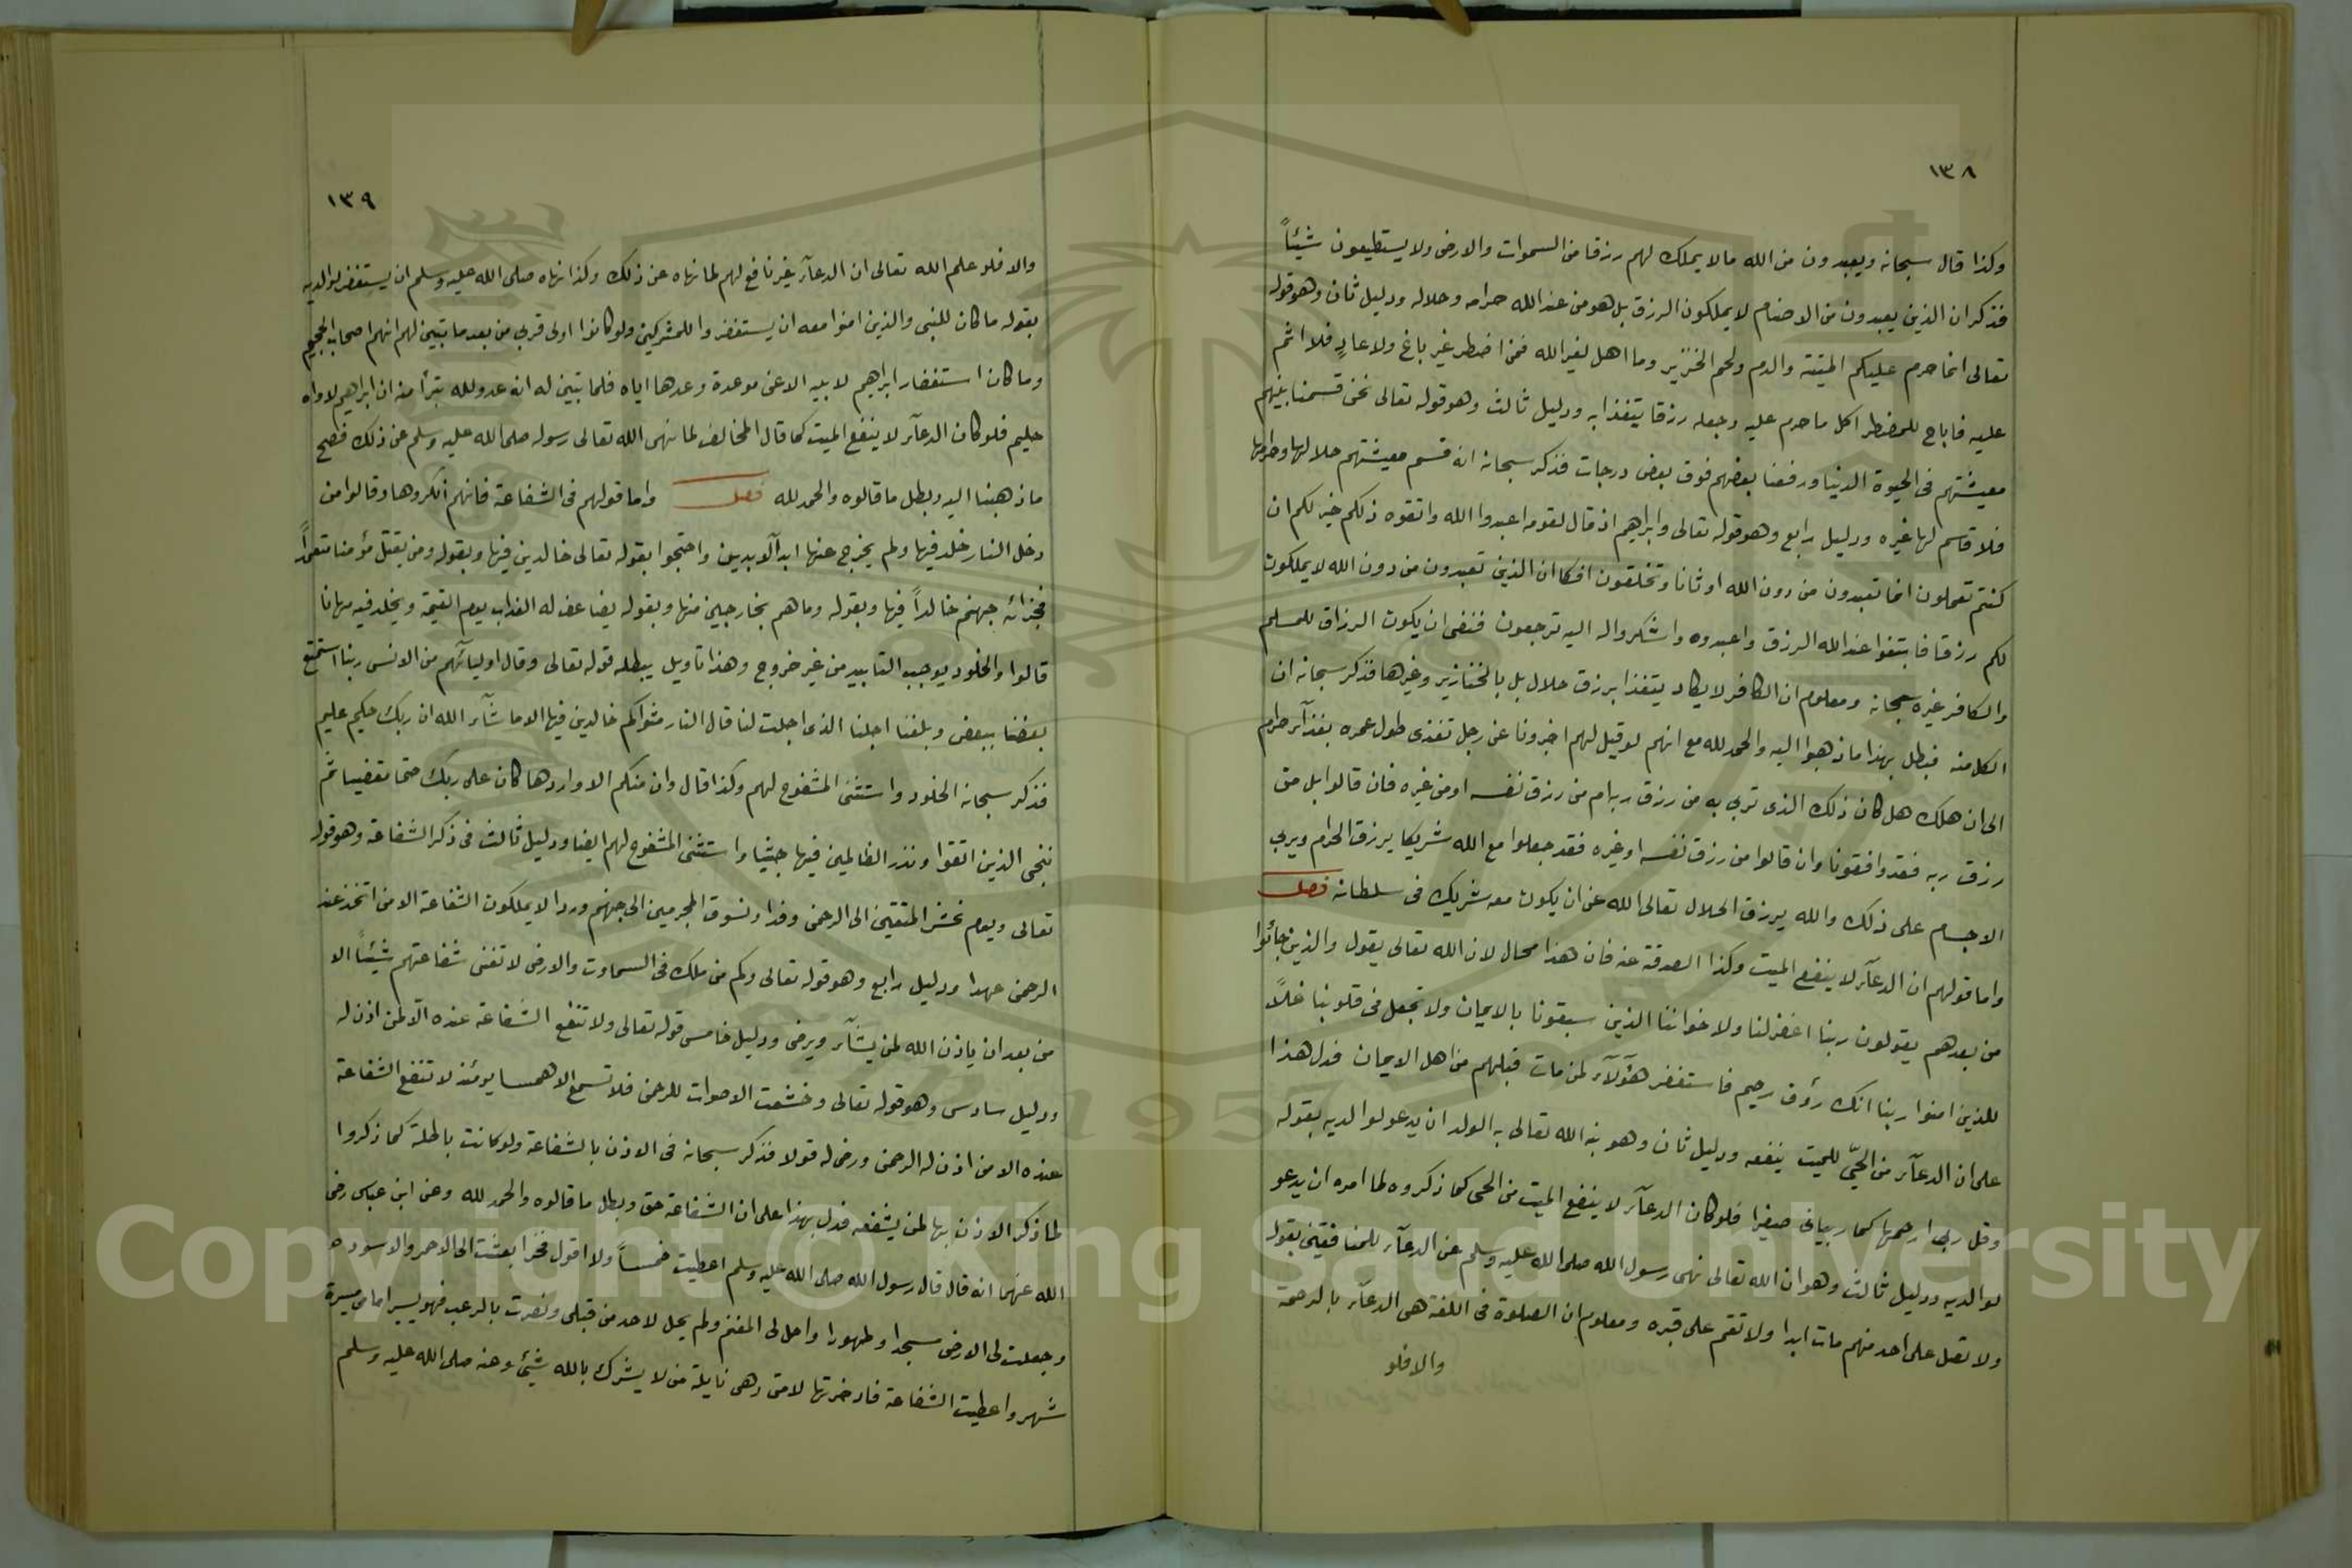 ١٣٨
وكذا قال سبحانه ويعبدون من الله مالا يملك لهم رزقا من السموات والارض ولا يستطيعون شيئاً
فذكر ان الذين يعبدون من الاصنام لا يملكون الرزق بل هو من عند الله حرامه وحلاله ودليل ثان وهو قوله
تعالى انما حرم عليكم الميتة والدم ولحم الخنزير وما اهل لغير الله فمن اضطر غير باغ ولا عادٍ فلا اثم
عليه فاباح للمضطر اكل ما حرم عليه وجعله رزقا يتغذا به ودليل ثالث وهو قوله تعالى نحن قسمنا بينهم
معيشتهم في الحيوة الدنيا ورفعنا بعضهم فوق بعض درجات فذكر سبحانه انه قسم معيشتهم حلالها وحرامها
فلا قاسم لها غيره ودليل رابع وهو قوله تعالى وابراهيم اذ قال لقومه اعبدوا الله واتقوه ذلكم خير لكم ان
كنتم تعملون انما تعبدون من دون الله اوثانا وتخلقون افكا ان الذين تعبدون من دون الله لا يملكون
لكم رزقا فابتغوا عند الله الرزق واعبدوه واشكروا له اليه ترجعون فنفى ان يكون الرزاق للمسلم
والكافر غيره سبحانه ومعلوم ان الكافر لا يكاد يتغذا برزق حلال بل بالخنازير وغيرها فذكر سبحانه ان
الكل منه فبطل بهذا ما ذهبوا اليه والحمد لله مع انهم لو قيل لهم اخبرونا عن رجل تغذى طول عمره بغذآء حرام
الى ان هلك هل كان ذلك الذي تربي به من رزق ربه ام من رزق نفسه او من غيره فان قالوا بل من
رزق ربه فقد وافقونا وان قالوا من رزق نفسه او غيره فقد جعلوا مع الله شريكا يرزق الحرام ويربي
الاجسام على ذلك والله يرزق الحلال تعالى الله عن ان يكون معه شريك في سلطانه فصل
واما قولهم ان الدعآء لا ينفع الميت وكذا الصدقة عنه فان هذا محال لان الله تعالى يقول والذين جائوا
من بعدهم يقولون ربنا اغفر لنا ولاخواننا الذين سبقونا بالايمان ولا تجعل في قلوبنا غلاً
للذين امنوا ربنا انك رؤف رحيم فاستغفر هؤلآء لمن مات قبلهم من اهل الايمان فدل هذا
على ان الدعآء من الحيّ للميت ينفعه ودليل ثان وهو نبه الله تعالى به الولد ان يدعو لوالديه بقوله
وقل ربي ارحمهما كما ربياني صغيرا فلو كان الدعآء لا ينفع الميت من الحي كما ذكروه لما امره ان يدعو
لوالديه ودليل ثالث وهو ان الله تعالى نهى رسول الله صلى الله عليه وسلم عن الدعآء للمنافقين بقوله
ولا تصل على احد منهم مات ابدا ولا تقم على قبره ومعلوم ان الصلوة في اللغة هي الدعآء بالرحمة
والا فلو
١٣٩
والا فلو علم الله تعالى ان الدعآء غير نافع لهم لما نهاه عن ذلك وكذا نهاه صلى الله عليه وسلم ان يستغفر لوالديه
بقوله ما كان للنبي والذين امنوا معه ان يستغفروا للمشركين ولو كانوا اولى قربي من بعد ما تبين لهم انهم اصحاب الجحيم
وما كان استغفار ابراهيم لابيه الا عن موعدة وعدها اياه فلما تبين له انه عدو لله تبرأ منه ان ابراهيم لاواه
حليم فلو كان الدعآء لا ينفع الميت كما قال المخالف لما نهى الله تعالى رسوله صلى الله عليه وسلم عن ذلك فصح
ما ذهبنا اليه وبطل ما قالوه والحمد لله فصل واما قولهم في الشفاعة فانهم انكروها وقالوا من
دخل النار خلد فيها ولم يخرج عنها ابد الآبدين واحتجوا بقوله تعالى خالدين فيها وبقوله ومن يقتل مؤمنا متعمداً
فجزائه جهنم خالداً فيها وبقوله وما هم بخارجين منها وبقوله يضاعف له العذاب يوم القيمة ويخلد فيه مهانا
قالوا والخلود يوجب التابيد من غير خروج وهذا تاويل يبطله قوله تعالى وقال اوليائهم من الانس ربنا استمتع
بعضنا ببعض وبلغنا اجلنا الذي اجلت لنا قال النار مثواكم خالدين فيها الا ما شآء الله ان ربك حكيم عليم
فذكر سبحانه الخلود واستثنى المشفوع لهم وكذا قال وان منكم الا واردها كان على ربك حتما مقضيا ثم
ننجي الذين اتقوا ونذر الظالمين فيها جثيا واستثنى المشفوع لهم ايضا ودليل ثالث في ذكر الشفاعة وهو قوله
تعالى ويوم نحشر المتقين الى الرحمن وفدا ونسوق المجرمين الى جهنم وردا لا يملكون الشفاعة الا من اتخذ عند
الرحمن عهدا ودليل رابع وهو قوله تعالى وكم من ملك في السماوت والارض لا تغنى شفاعتهم شيئاً الا
من بعد ان ياذن الله لمن يشآء ويرضى ودليل خامس قوله تعالى ولا تنفع الشفاعة عنده الّا لمن اذن له
ودليل سادس وهو قوله تعالى وخشعت الاصوات للرحمن فلا تسمع الا همسا يومئذ لا تنفع الشفاعة
عنده الا من اذن له الرحمن ورضى له قولا فذكر سبحانه في الاذن بالشفاعة ولو كانت باطلة كما ذكروا
لما ذكر الاذن بها لمن يشفعه فدل بهذا على ان الشفاعة حق وبطل ما قالوه والحمد لله وعن ابن عباس رضى
الله عنهما انه قال قال رسول الله صلى الله عليه وسلم اعطيت خمساً ولا اقول فخرا بعثت الى الاحمر والاسود
وجعلت لى الارض مسجدا وطهورا واحل لى المغنم ولم يحل لاحد من قبلى ونصرت بالرعب فهو يسير امامى مسيرة
شهر واعطيت الشفاعة فادخرتها لامتى وهى نايلة من لا يشرك بالله شيئ وعنه صلى الله عليه وسلم
Copyright © King Saud University
1957